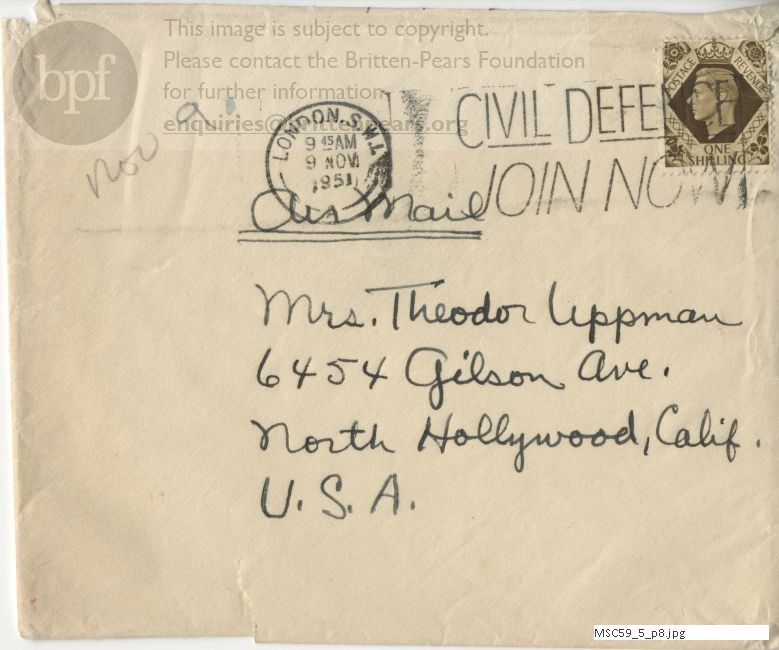 bpf
This image is subject to copyright.
Please contact the Britten-Pears Foundation
for further information
enquiries@brittenpears.org
Nov 9
LONDON. S.W.1.
9 45AM
9 NOV
1951
CIVIL DEFENCE
JOIN NOW!
POSTAGE REVENUE
ONE
SHILLING
Air Mail
Mrs. Theodor Uppman
6454 Gilson Ave.
North Hollywood, Calif.
U. S. A.
MSC59_5_p8.jpg